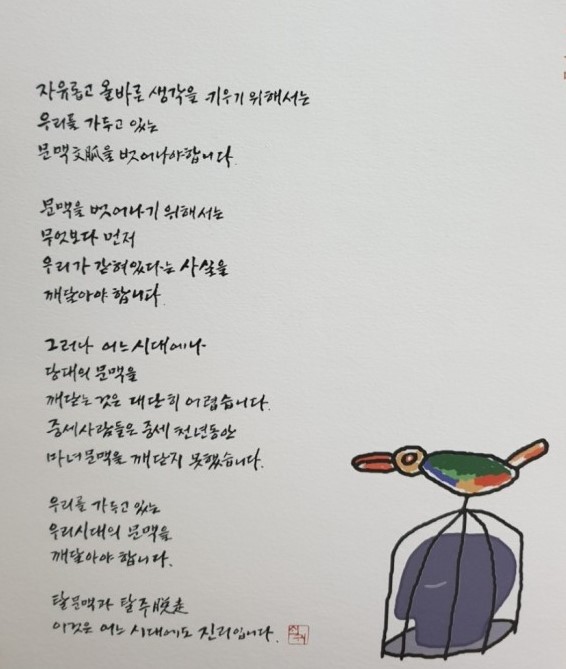 자유롭고 올바른 생각을 키우기 위해서는
우리를 가두고 있는
문맥文脈을 벗어나야합니다.
문맥을 벗어나기 위해서는
무엇보다 먼저
우리가 갇혀있다는 사실을
깨달아야 합니다.
그러나 어느시대에나
당대의 문맥을
깨닫는것은 대단히 어렵습니다.
중세사람들은 중세 천년동안
마녀문맥을 깨닫지 못했습니다.
우리를 가두고 있는
우리시대의 문맥을
깨달아야 합니다.
탈문맥과 탈주脫走
이것은 어느 시대에도 진리입니다.